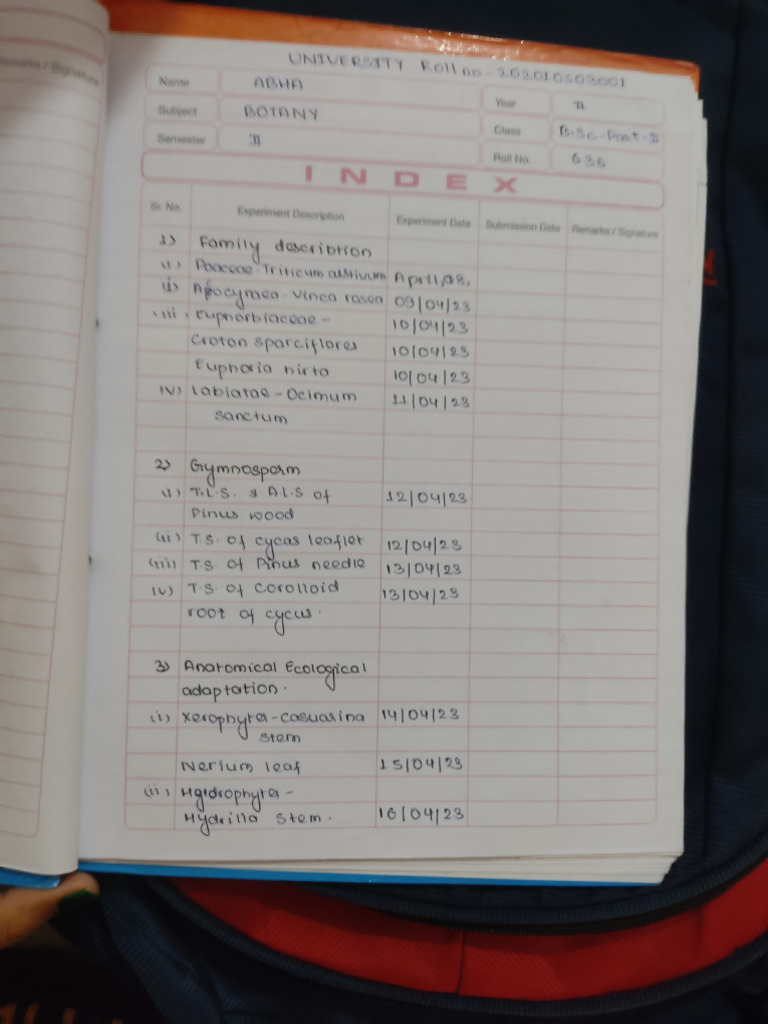 Remarks / Signature
UNIVERSITY Roll no - 202010503001
Name ABHA
Year II
Subject BOTANY
Class B.Sc. Part-II
Semester II
Roll No. 636
INDEX
Sr. No. Experiment Description Experiment Date Submission Date Remarks / Signature
1) Family describtion
(i) Poaceae - Triticum aestivum April, 08,
(ii) Apocymea - Vinca rasea 09/04/23
(iii) Euphorbiaceae - 10/04/23
Croton sparciflores 10/04/23
Euphoria hirta 10/04/23
(iv) Labiatae - Ocimum 11/04/23
sanctum
2) Gymnosperm
(i) T.L.S. & R.L.S of 12/04/23
Pinus wood
(ii) T.S. of cycas leaflet 12/04/23
(iii) T.S. of Pinus needle 13/04/23
(iv) T.S. of Corolloid 13/04/23
root of cycus.
3) Anatomical Ecological
adaptation.
(i) Xerophyta - casuarina 14/04/23
stem
Nerium leaf 15/04/23
(ii) Hydrophyta -
Hydrilla stem. 16/04/23